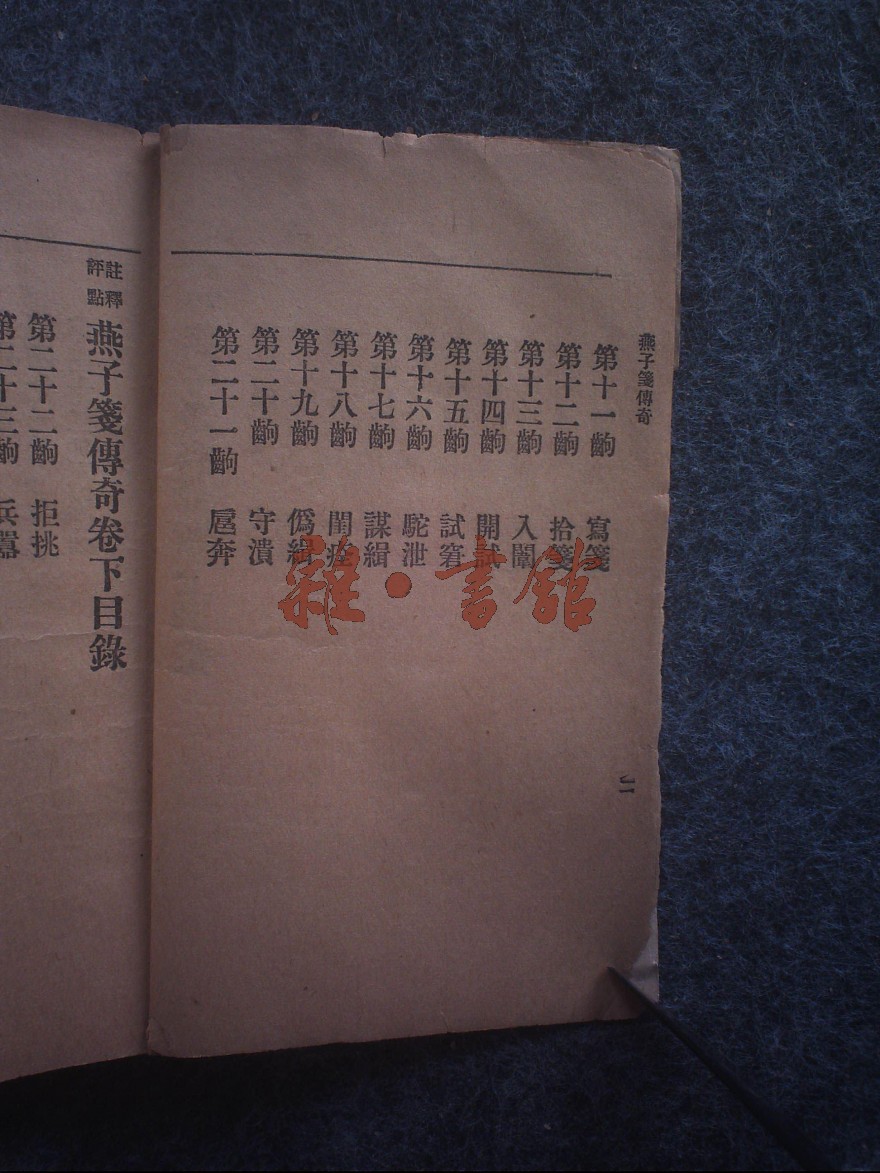 燕子箋傳奇
第十一齣 寫箋
第十二齣 拾箋
第十三齣 入闈
第十四齣 開試
第十五齣 試窘
第十六齣 駝泄
第十七齣 謀緝
第十八齣 閨痊
第十九齣 偽緝
第二十齣 守潰
第二十一齣 扈奔
二
註釋
評點
燕子箋傳奇卷下目錄
第二十二齣 拒挑
第二十三齣 兵囂
雜·書館